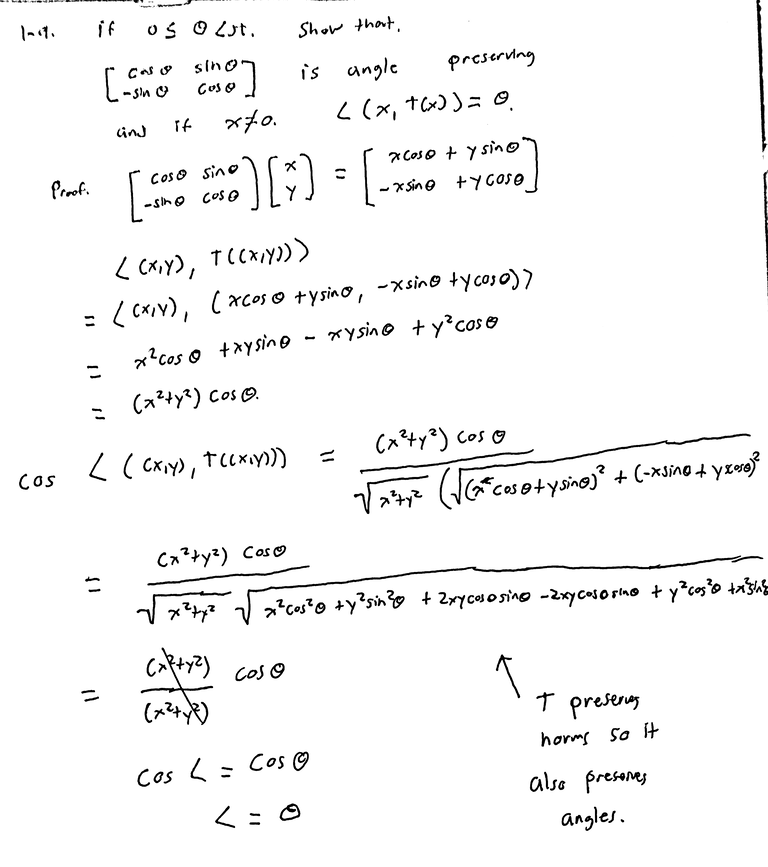 1-9. if 0 ≤ θ < π. Show that.
[cosθ sinθ
-sinθ cosθ] is angle preserving
and if x≠0. ∠(x, T(x)) = θ.
Proof. [cosθ sinθ
-sinθ cosθ] [x
y] = [xcosθ + ysinθ
-xsinθ + ycosθ]
⟨(x,y), T((x,y))⟩
= ⟨(x,y), (xcosθ + ysinθ, -xsinθ + ycosθ)⟩
= x²cosθ + xysinθ - xysinθ + y²cosθ
= (x²+y²) cosθ.
cos ∠((x,y), T((x,y))) = (x²+y²) cosθ
√x²+y² (√(xcosθ + ysinθ)² + (-xsinθ + ycosθ)²
= (x²+y²) cosθ
√x²+y² √x²cos²θ + y²sin²θ + 2xycosθsinθ - 2xycosθsinθ + y²cos²θ + x²sin²θ
= (x²+y²)
(x²+y²) cosθ
cos ∠ = cosθ
∠ = θ
↑ T preserves
norms so it
also preserves
angles.